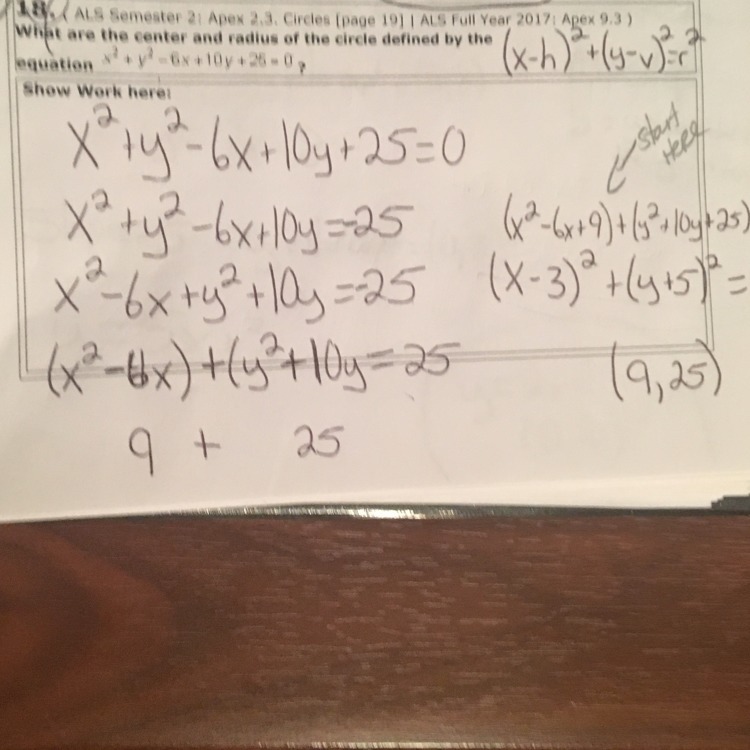 18. ( ALS Semester 2: Apex 2.3. Circles [page 19] | ALS Full Year 2017: Apex 9.3 )
What are the center and radius of the circle defined by the
equation x² + y² - 6x + 10y + 25 = 0 ?
(x-h)²+(y-v)²=r²
Show Work here:
x²+y²-6x+10y+25=0
x²+y²-6x+10y=-25
x²-6x+y²+10y=-25
(x²-6x)+(y²+10y=25
9 + 25
start
here
(x²-6x+9)+(y²+10y+25)
(x-3)²+(y+5)²=
(9,25)